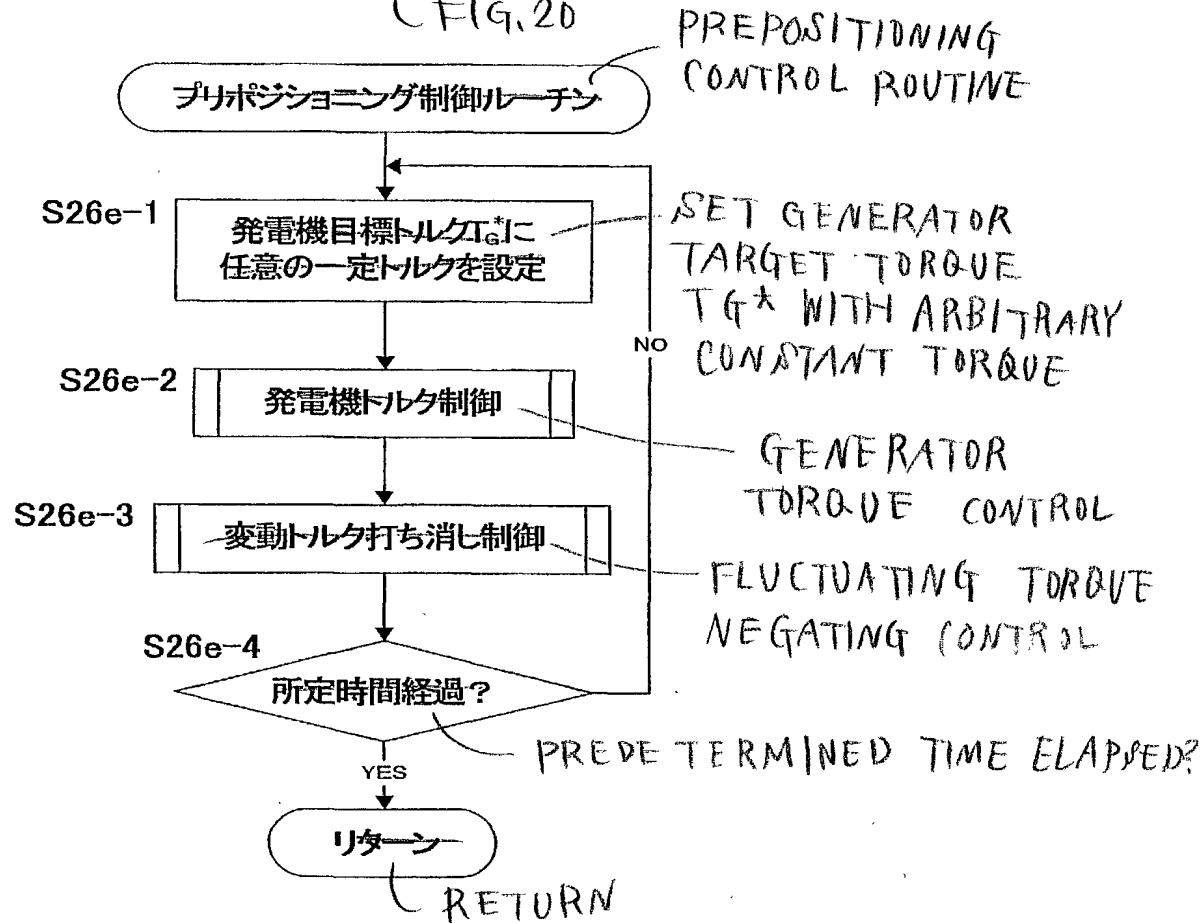 FIG. 20
PREPOSITIONING
CONTROL ROUTINE
プリポジショニング制御ルーチン
S26e-1
発電機目標トルクTG*に
任意の一定トルクを設定
SET GENERATOR
TARGET TORQUE
TG* WITH ARBITRARY
CONSTANT TORQUE
NO
S26e-2
発電機トルク制御
GENERATOR
TORQUE CONTROL
S26e-3
変動トルク打ち消し制御
FLUCTUATING TORQUE
NEGATING CONTROL
S26e-4
所定時間経過?
PREDETERMINED TIME ELAPSED?
YES
リターン
RETURN